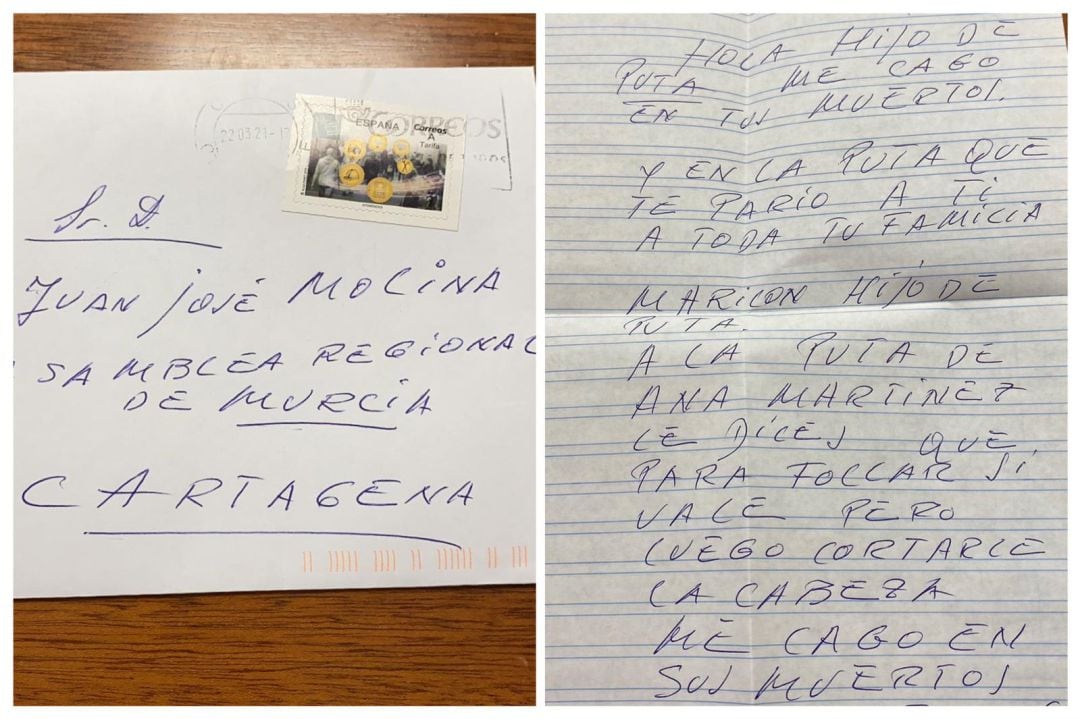 22.03.21-1
CORREOS
ESPAÑA Correos
A
Tarifa
Sr. D.
JUAN JOSÉ MOLINA
SAMBLEA REGIONAL
DE MURCIA
CARTAGENA
HOLA HIJO DE
PUTA ME CAGO
EN TUS MUERTOS.
Y EN LA PUTA QUE
TE PARIO A TI
A TODA TU FAMILIA
MARICON HIJO DE
PUTA.
A LA PUTA DE
ANA MARTINEZ
LE DICES QUE
PARA FOLLAR SI
VALE PERO
LUEGO CORTARLE
LA CABEZA
ME CAGO EN
SUS MUERTOS